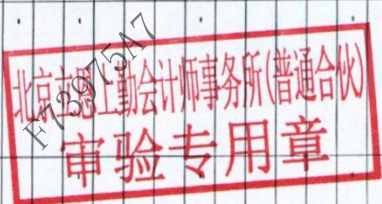 北京京恩上勤会计师事务所(普通合伙)
审验专用章
F73975A7